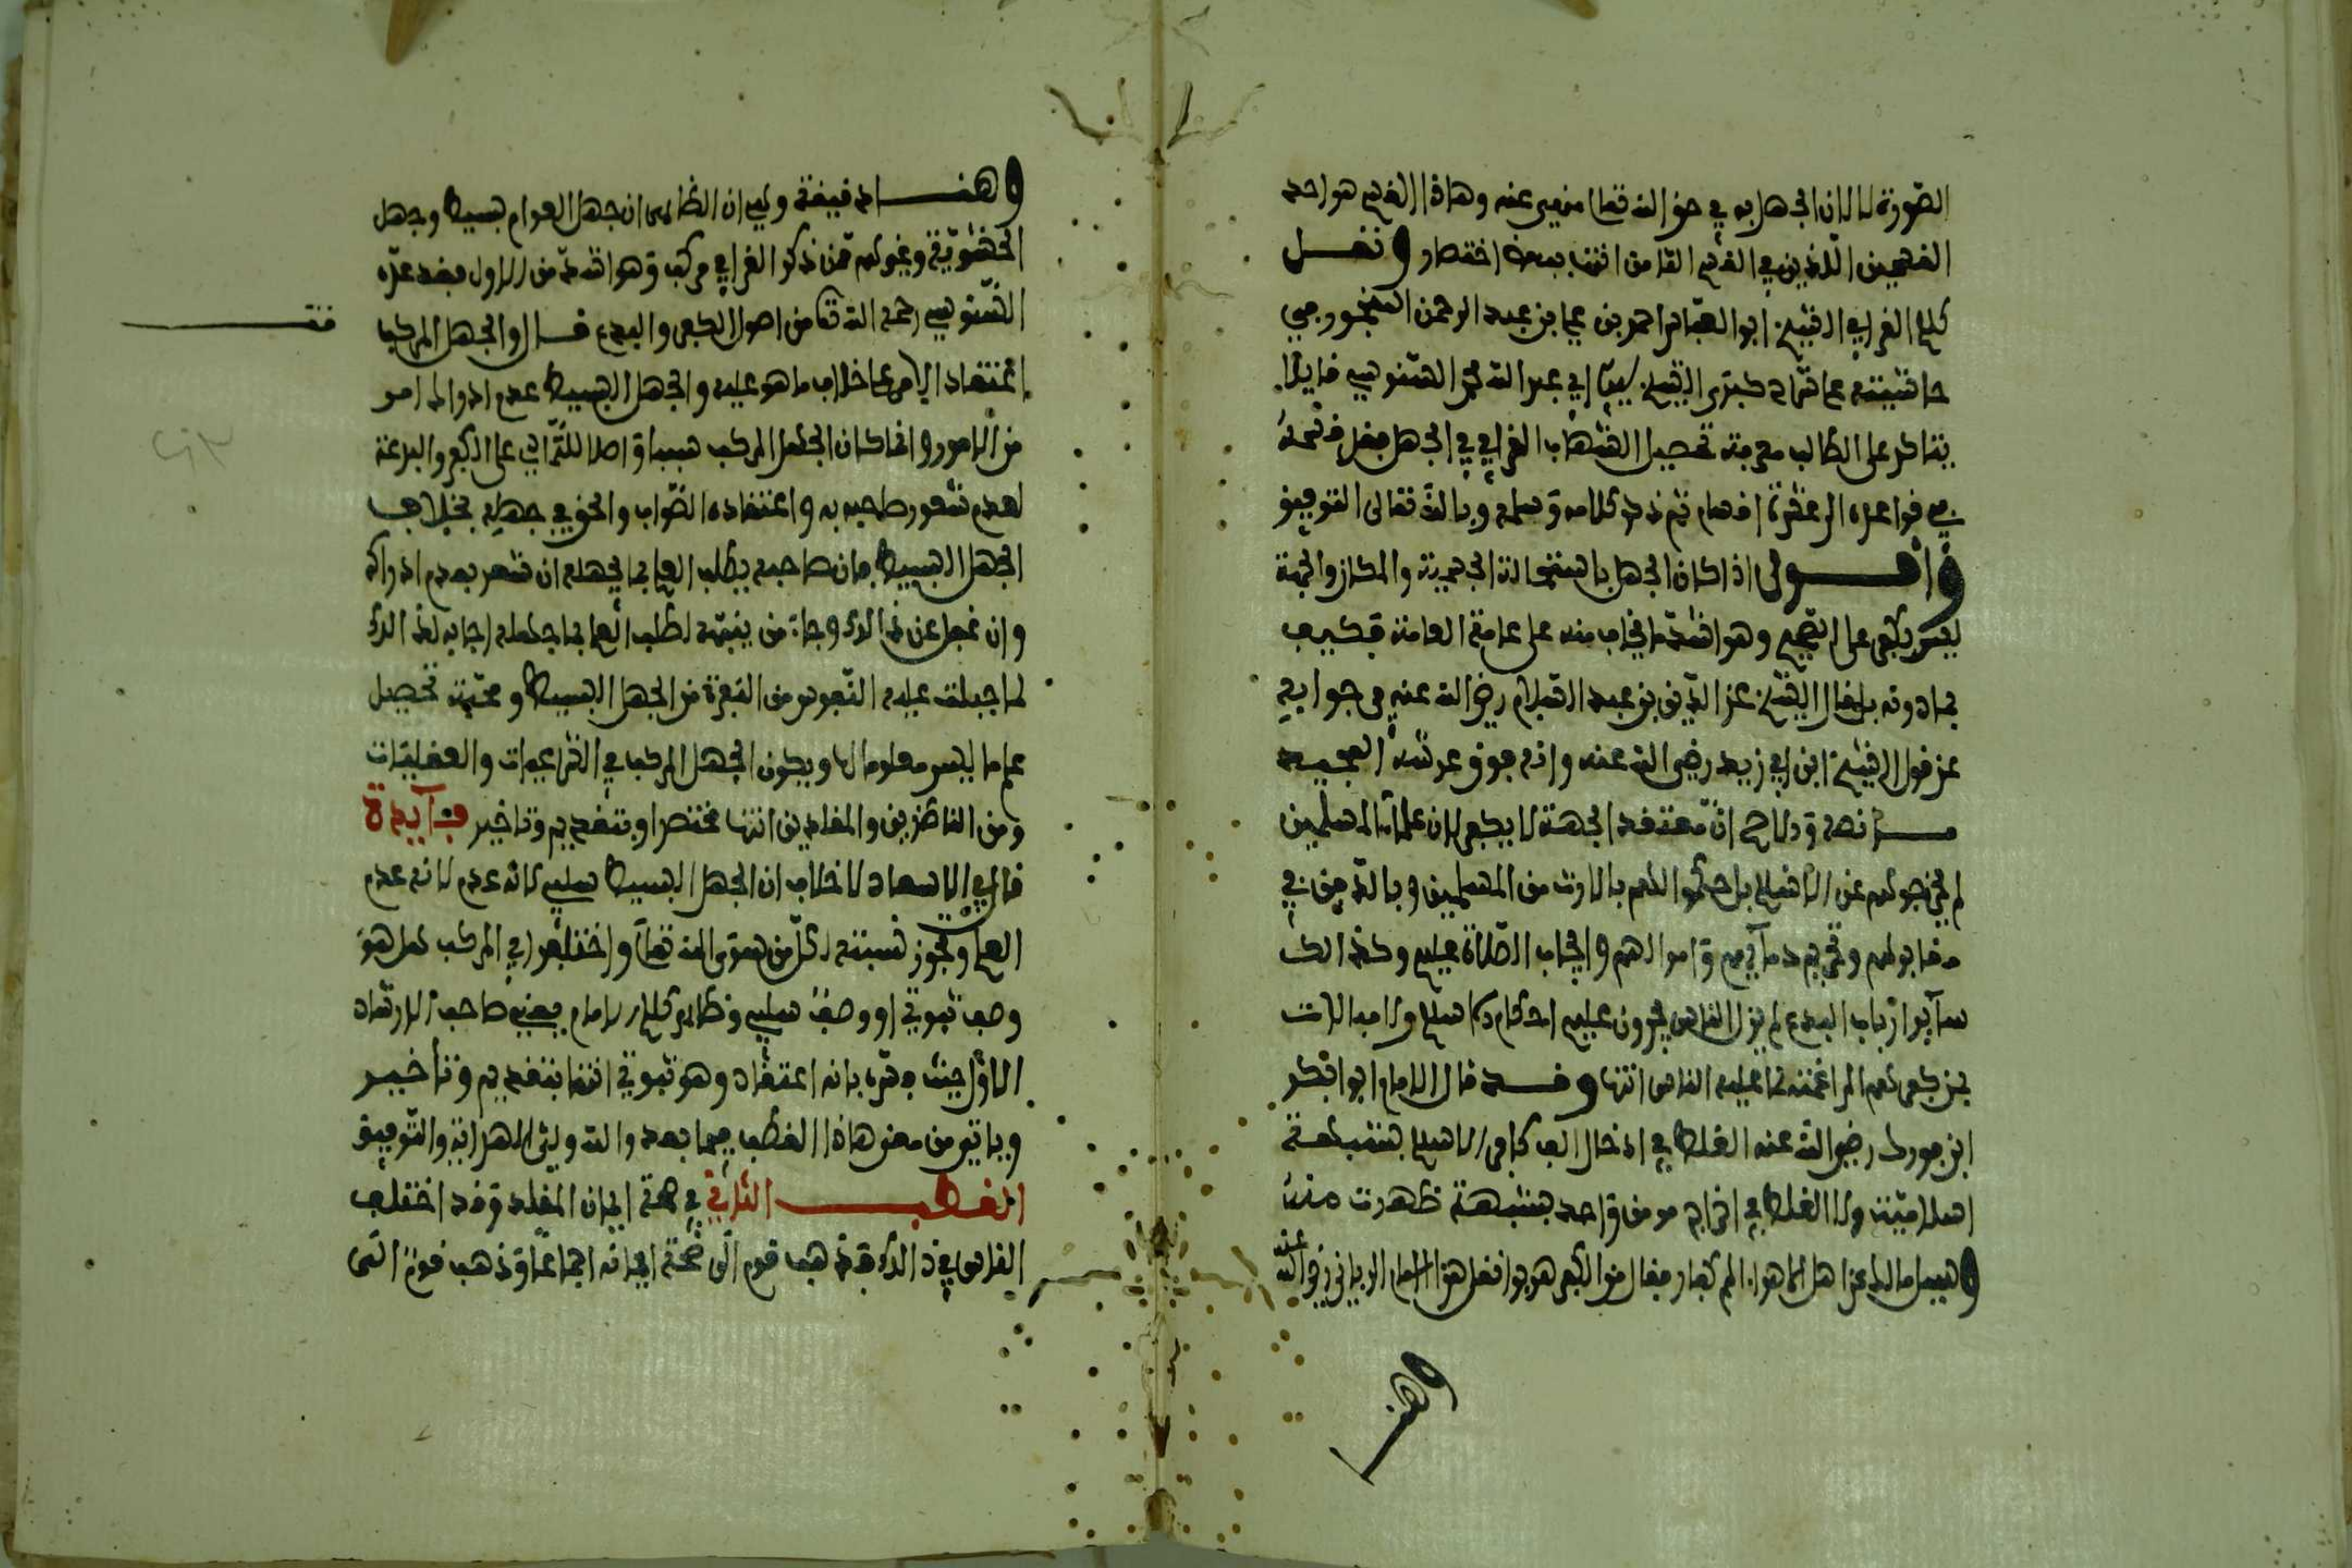 الصورة لا لان الجهل به في حق الله تعالى منهي عنه وهاذا القسم هو احد
القسمين الذين في القسم الثامن انتهى ببعض اختصار ونقل
كلام القرافي الشيخ ابو العباس احمد بن علي بن عبد الرحمن المنجور في
حاشيته على كبرى الشيخ ابي عبد الله محمد السنوسي قايلا
يتاكد على الطالب معرفته تحصيل الشهاب القرافي في الجهل فقل
في قواعده اقسام ثم ذكر كلامه وسلمه وبالله تعالى التوفيق
واقول اذا كان الجهل باستحالة الجسمية والمكان والجهة
ليس بكفر على الصحيح وهو اشد مما يخاف منه على عامة العامة فكيف
بما دونه بل قال الشيخ عز الدين بن عبد السلام رضي الله عنه في جوابه
عن قول الشيخ ابن ابي زيد رضي الله عنه وانه فوق عرشه المجيد
ما نصه والاصح ان معتقد الجهة لا يكفر لان علماء المسلمين
لم يخرجوهم عن الاسلام بل حكموا لهم بالارث من المسلمين وبالدفن في
مقابرهم وتحريم دمايهم واموالهم وايجاب الصلاة عليهم وكذالك
ساير ارباب البدع لم يزل الناس يجرون عليهم احكام الاسلام ولا مبالات
بمن كفرهم لمراغمته لما عليه الناس انتهى وقد قال الامام ابو بكر
ابن فورك رضي الله عنه الغلط في ادخال الف كافر في الاسلام بشبهة
اسلامية ولا الغلط في اخراج مومن واحد بشبهة ظهرت منه
وسيل مالك عن اهل الاهواء اهم كفار فقال من الكفر هربوا نقل هذا الامام الرباني رضي الله عنه
وهنا
وهنا دقيقة وهي ان الظاهر ان جهل العوام بسيط وجهل
الحشوية ونحوهم ممن ذكر القرافي مركب وهو اشد من الاول فقد عده
السنوسي رحمه الله تعالى من اصول الكفر والبدع قال والجهل المركب
اعتقاد الامر على خلاف ما هو عليه والجهل البسيط عدم ادراك امر
من الامور وانما كان الجهل المركب سببا واصلا للتمادي على الكفر والبدعة
لعدم شعور صاحبه به واعتقاده الصواب والحق في جهله بخلاف
الجهل البسيط فان صاحبه يطلب العلم بما يجهله ان شعر بعدم ادراكه
وان غفل عن ذالك وجاء من ينبهه لطلب العلم بما جهله اجابه لذالك
لما جبلت عليه النفوس من النفرة من الجهل البسيط ومحبة تحصيل
علم ما ليس معلوما لها ويكون الجهل المركب في الشرعيات والعقليات
ومن الناظرين والمقلدين انتهى مختصرا وبتقديم وتاخير فايدة
قال في الاسعاد لا خلاف ان الجهل البسيط سلبي لانه عدم لانه عدم
العلم وتجوز نسبته لكل من سوى الله تعالى واختلفوا في المركب هل هو
وصف ثبوتي او وصف سلبي وظاهر كلام الامام يعني صاحب الارشاد
الاول حيث فسره بانه اعتقاد وهو ثبوتي انتهى بتقديم وتاخير
وياتي من معنى هاذا المطلب فيما بعد والله ولي الهداية والتوفيق
المطلب الثاني في صحة ايمان المقلد وقد اختلف
الناس في ذالك فذهب قوم الى صحة ايمانه اجماعا وذهب قوم الى